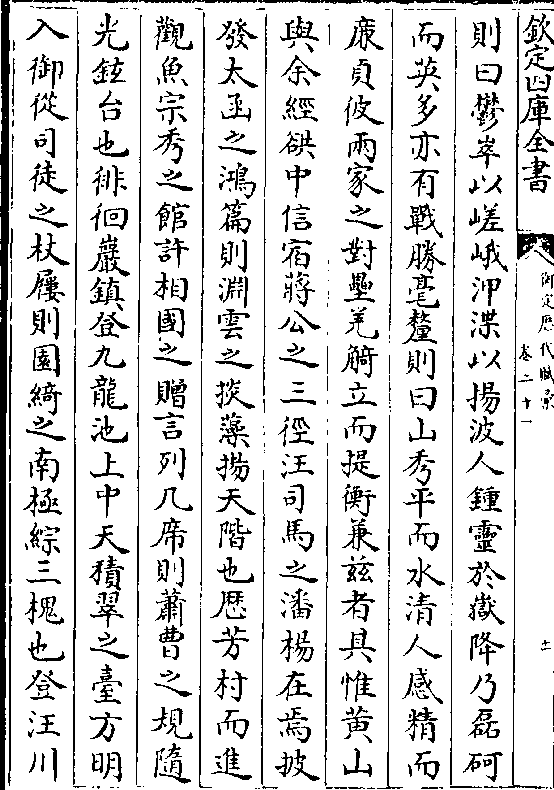 欽定四庫全書
御定歷代賦彙
卷二十一
則曰鬱崒以嵯峨泙渫以揚波人鍾靈於嶽降乃磊砢
而英多亦有戰勝毫釐則曰山秀平而水清人感精而
廉貞彼兩家之對壘羌觭立而提衡兼兹者具惟黄山
與余經谼中信宿蔣公之三徑汪司馬之潘楊在焉披
發太函之鴻篇則淵雲之掞藻揚天階也歴芳村而進
觀魚宗秀之館許相國之贈言列几席則蕭曹之規隨
光鉉台也徘徊巖鎮登九龍池上中天積翠之臺方明
入御從司徒之杖屨則園綺之南極綜三槐也登汪川